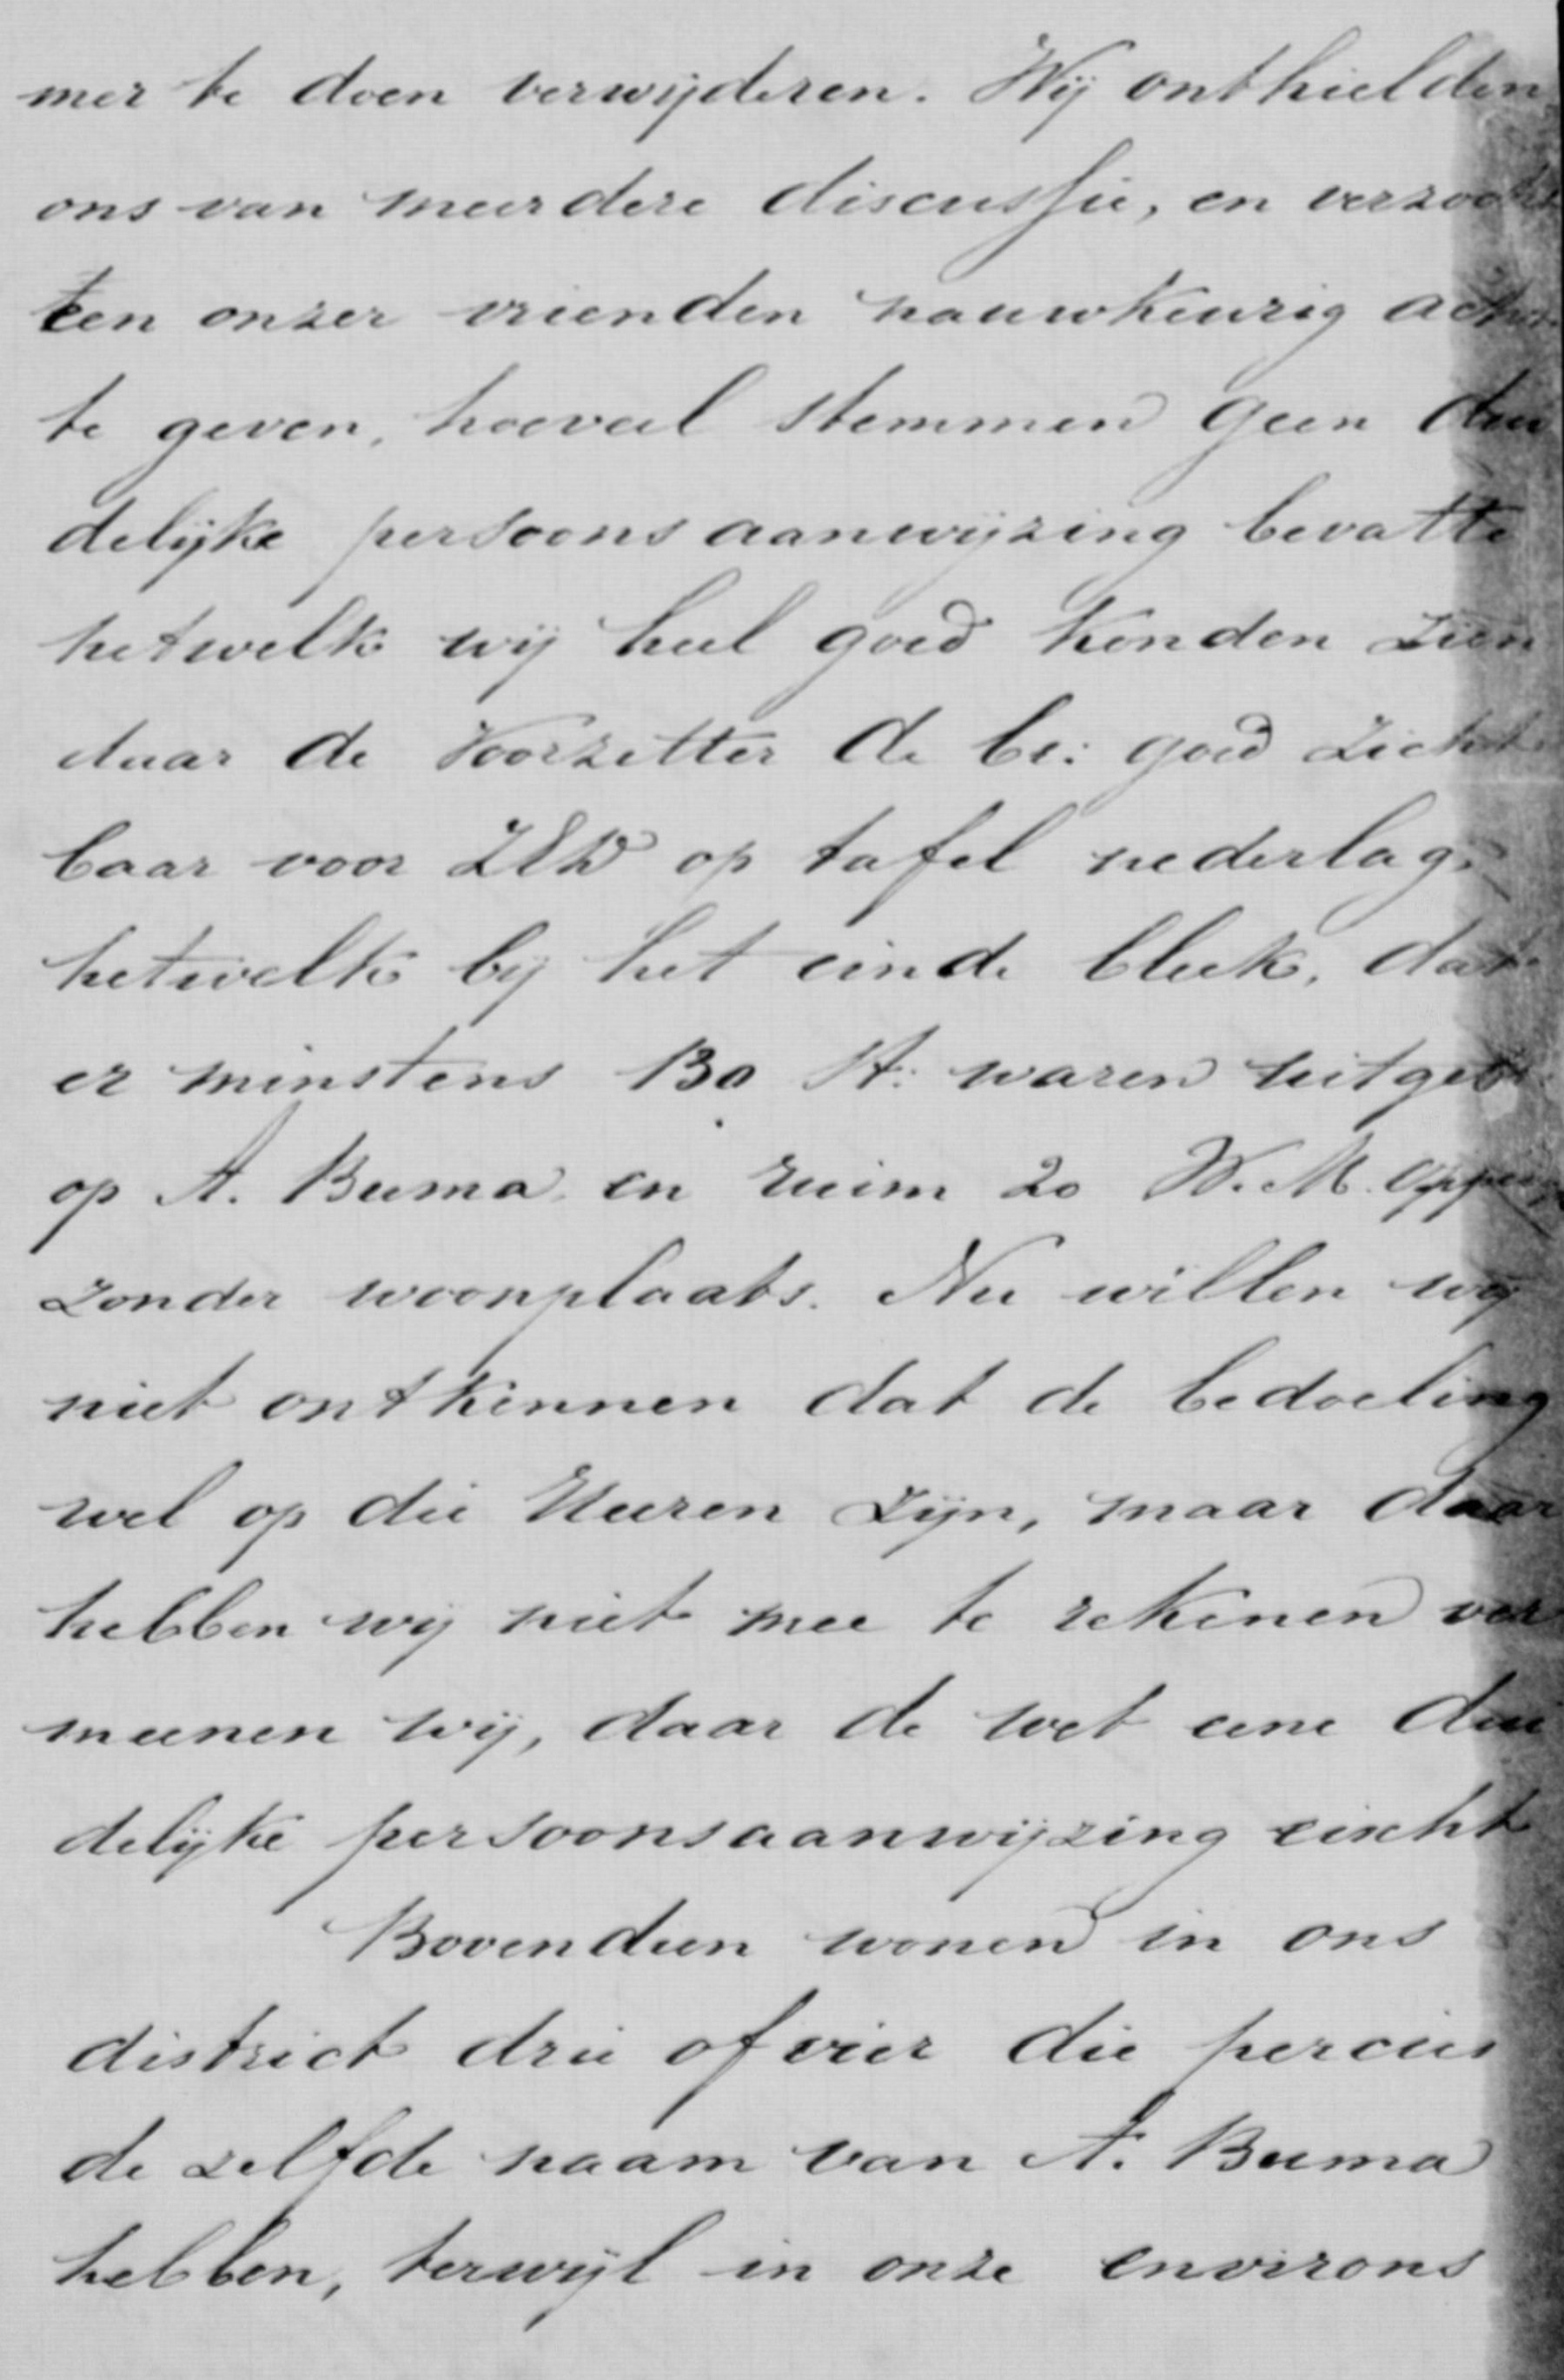 mer te doen verwijderen. Wij onthielden
ons van meerdere discussie, en verzocht
een onzer vrienden nauwkeurig acht
te geven, hoeveel stemmen geen dui
delijke persoonsaanwijzing bevatte
hetwelk wij heel goed konden zien
daar de Voorzitter de br: goed zicht
baar voor ZEd op tafel nederlag,
hetwelk bij het einde bleek, dat
er minstens 130 St: waren uitgebr
op A. Buma en ruim 20 W. M.
zonder woonplaats. Nu willen wij
niet ontkennen dat de bedoeling
wel op die Heeren zijn, maar daar
hebben wij niet mee te rekenen ver
meenen wij, daar de wet eene dui
delijke persoonsaanwijzing eischt
Bovendien wonen in ons
district drie of vier die percies
de zelfde naam van A. Buma
hebben, terwijl in onze environs